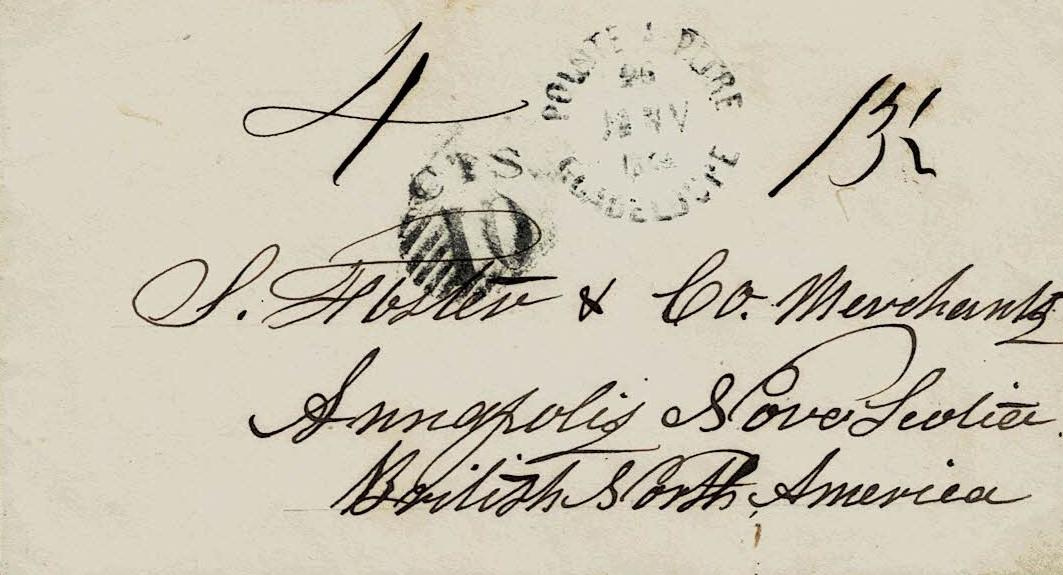 4
POINTE A PITRE
GUADELOUPE
CTS
10
S. Foster & Co. Merchants
Annapolis Nova Scotia
British North America